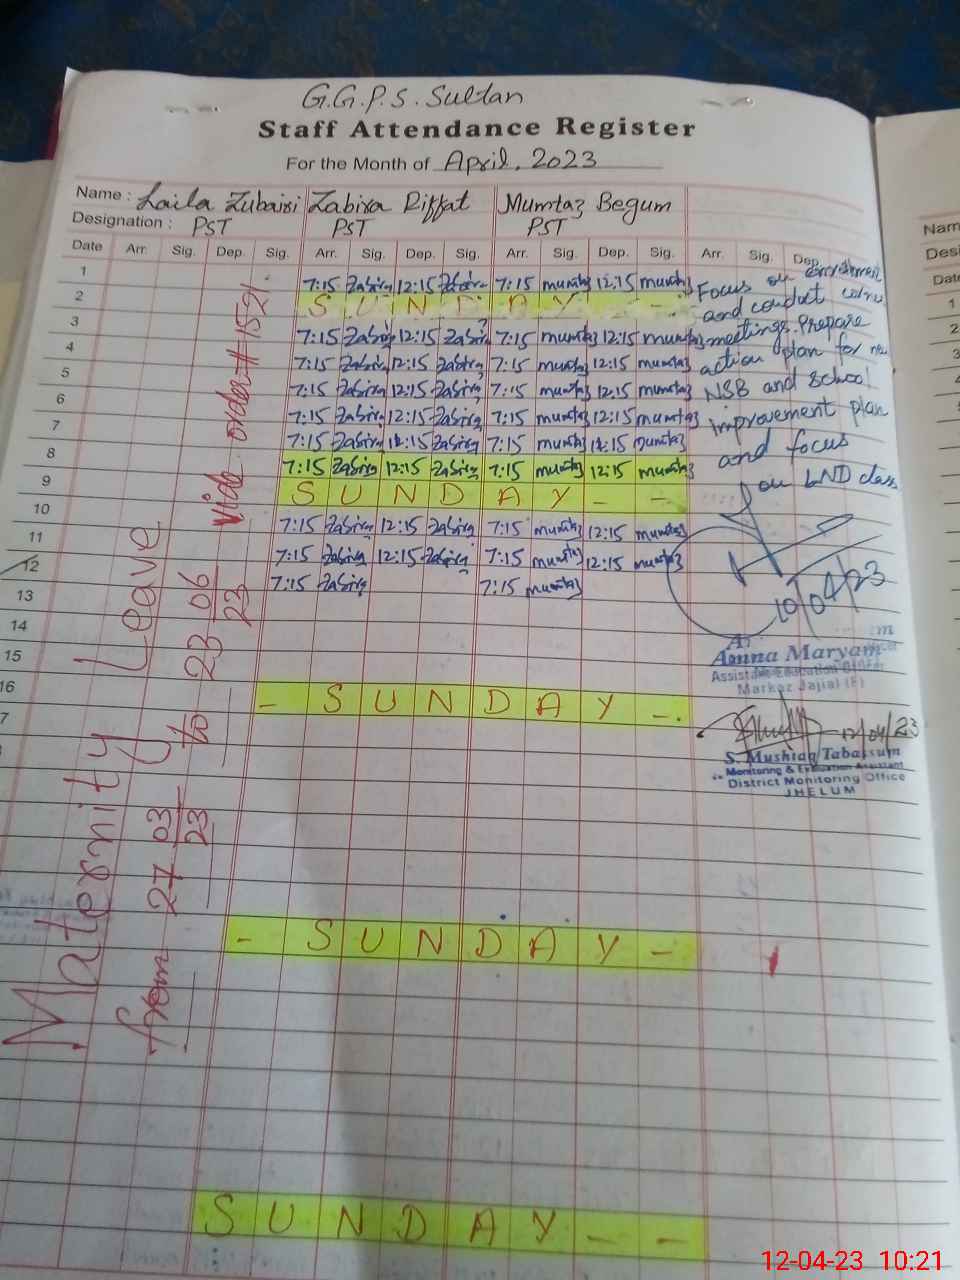 G.G.P.S. Sultan
Staff Attendance Register
For the Month of April, 2023
Name : Laila Zubairi Zabira Riffat Mumtaz Begum
Designation : PST PST PST
Date Arr. Sig. Dep. Sig. Arr. Sig. Dep. Sig. Arr. Sig. Dep. Sig. Arr. Sig. Dep.
1 7:15 Zabira 12:15 Zabira 7:15 mumtaz 12:15 mumtaz
2 S U N D A Y -
3 7:15 Zabira 12:15 Zabira 7:15 mumtaz 12:15 mumtaz
4 7:15 Zabira 12:15 Zabira 7:15 mumtaz 12:15 mumtaz
5 7:15 Zabira 12:15 Zabira 7:15 mumtaz 12:15 mumtaz
6 7:15 Zabira 12:15 Zabira 7:15 mumtaz 12:15 mumtaz
7 7:15 Zabira 12:15 Zabira 7:15 mumtaz 12:15 mumtaz
8 7:15 Zabira 12:15 Zabira 7:15 mumtaz 12:15 mumtaz
9 S U N D A Y - -
10 7:15 Zabira 12:15 Zabira 7:15 mumtaz 12:15 mumtaz
11 7:15 Zabira 12:15 Zabira 7:15 mumtaz 12:15 mumtaz
12 7:15 Zabira 7:15 mumtaz
13
14
15
16 - S U N D A Y -
7
- S U N D A Y -
S U N D A Y - -
Maternity Leave
from 27 03/23 to 23 06/23
vide order # 1521
Focus on enrolment
and conduct
meetings. Prepare
action plan for
NSB and School
improvement plan
and focus
on LND class
10/04/23
Amna Maryam
Assistant Education Officer
Markaz Jajial (F)
12/04/23
S. Mushtaq Tabassum
Monitoring & Evaluation Assistant
District Monitoring Office
JHELUM
Nam
Desi
Date
1
2
3
4
12-04-23 10:21